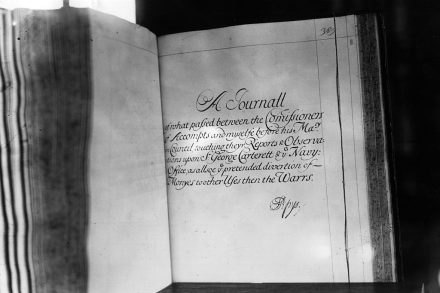 383
A Journall
of what passed between the Com̃issioners
of Accompts and myselfe before his Ma.ty
Councill touching theyr Reports & Observa
tions upon Sr George Carterett, & ye Navy-
Office, as alsoe ye pretended divertion of
Moneys to other Uses then the Warrs.
Pepys.